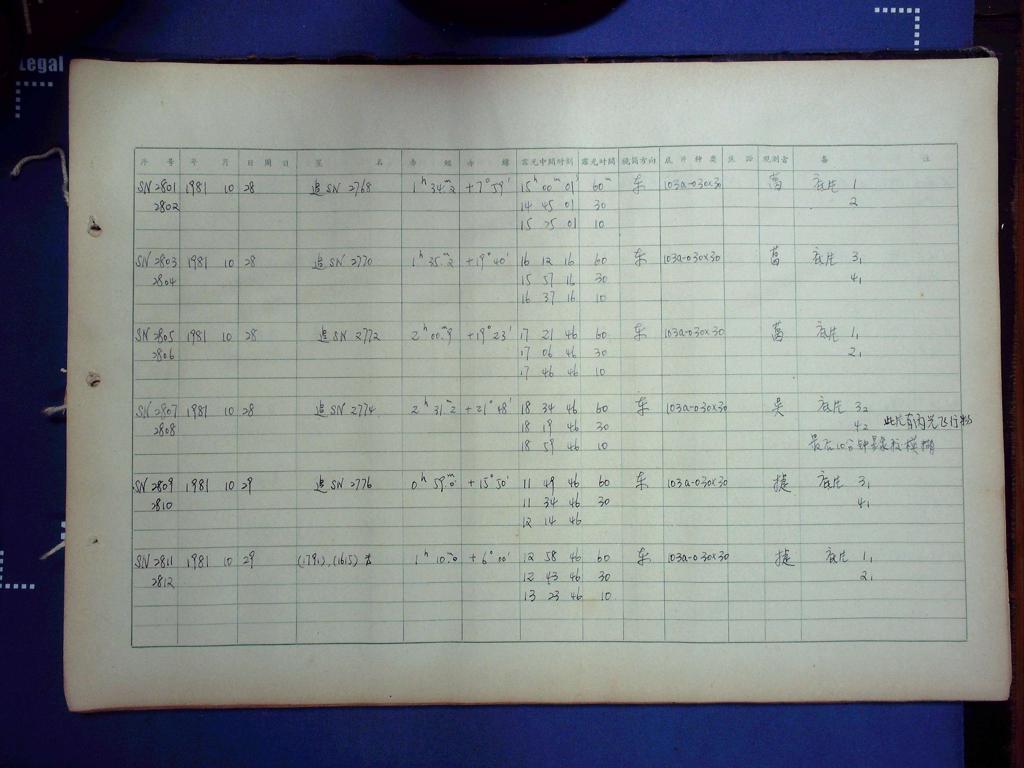 Legal
序 号 年 月 日 周 日 星 名 赤 经 赤 纬 露光中间时刻 露光时间 镜筒方向 底 片 种 类 观测者 备 注
SN 2801 1981 10 28 追 SN 2768 1ʰ 34ᵐ.2 +7°59′ 15ʰ 00ᵐ 01ˢ 60ᵐ 东 103a-O 30×30 底片 1
2802 14 45 01 30 2
15 25 01 10
SN 2803 1981 10 28 追 SN 2770 1ʰ 35ᵐ.2 +19°40′ 16 12 16 60 东 103a-O 30×30 底片 3₁
2804 15 57 16 30 4₁
16 37 16 10
SN 2805 1981 10 28 追 SN 2772 2ʰ 00ᵐ.9 +19°23′ 17 21 46 60 东 103a-O 30×30 底片 1₁
2806 17 06 46 30 2₁
17 46 46 10
SN 2807 1981 10 28 追 SN 2774 2ʰ 31ᵐ.2 +21°48′ 18 34 46 60 东 103a-O 30×30 吴 底片 3₂
2808 18 19 46 30 4₂ 此片有闪光飞行物
18 59 46 10 最后10分钟星象较模糊
SN 2809 1981 10 29 追 SN 2776 0ʰ 59ᵐ.0 +15°50′ 11 49 46 60 东 103a-O 30×30 捷 底片 3₁
2810 11 34 46 30 4₁
12 14 46
SN 2811 1981 10 29 (1791), (1615) 1ʰ 10ᵐ.0 +6°00′ 12 58 46 60 东 103a-O 30×30 捷 底片 1₁
2812 12 43 46 30 2₁
13 23 46 10